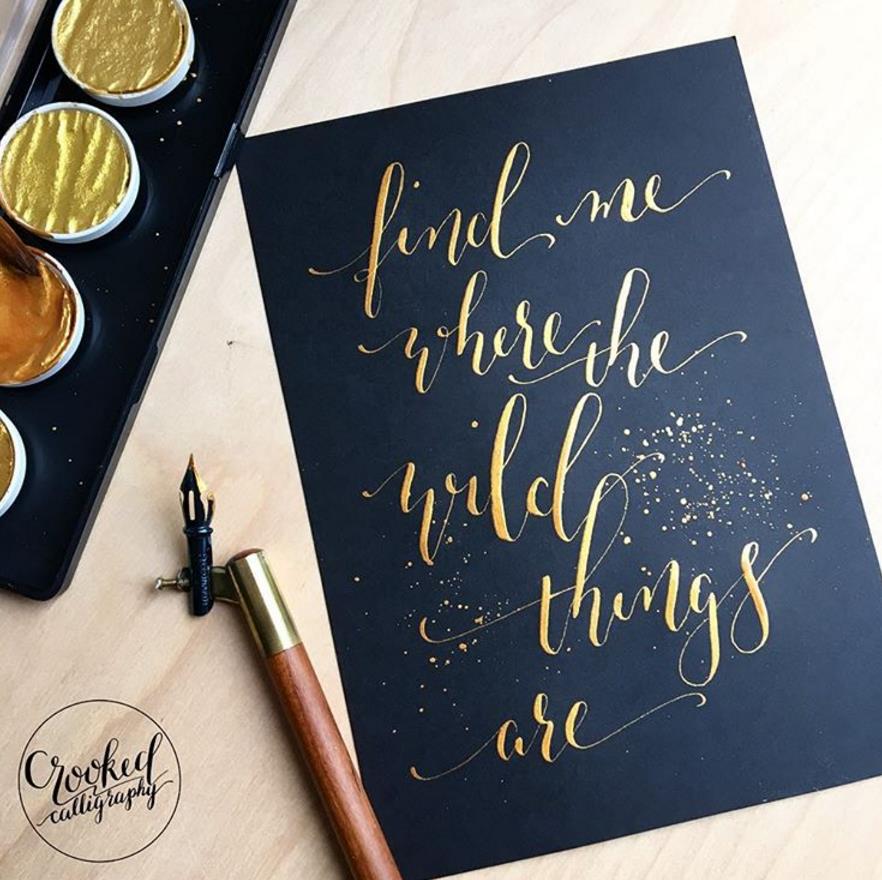 find me
where the
wild
things
are
Crooked
calligraphy